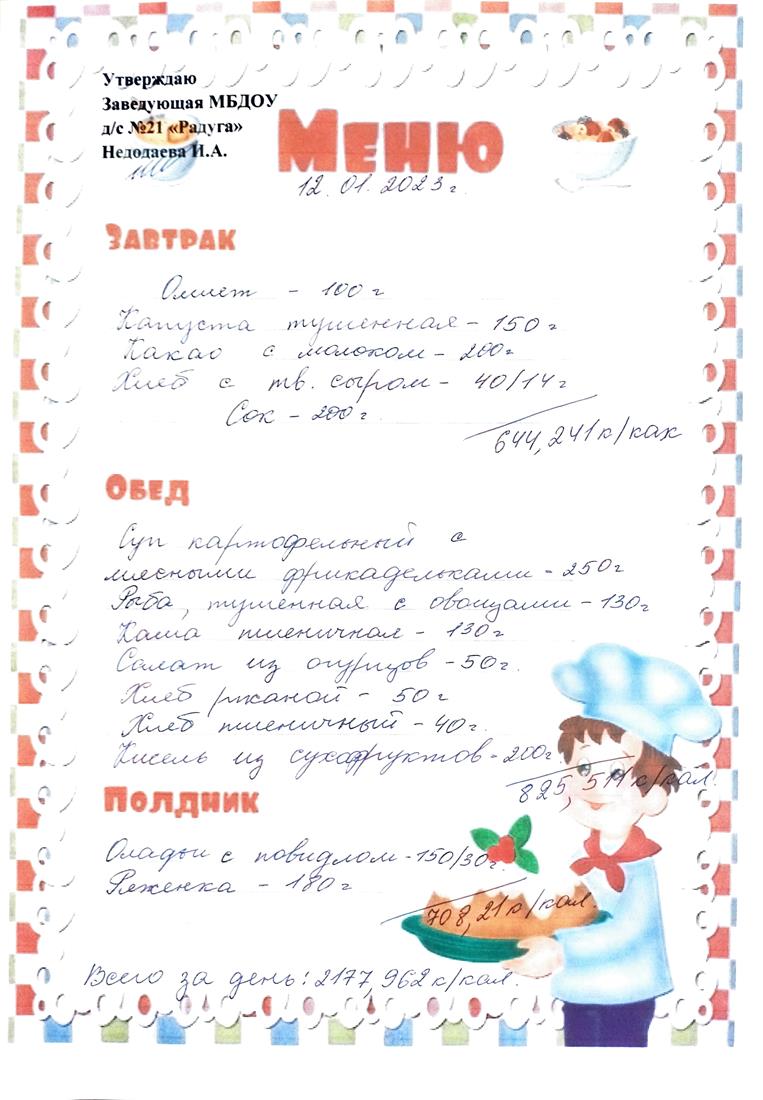 Утверждаю
Заведующая МБДОУ
д/с №21 «Радуга»
Недодаева И.А.
Меню
12.01.2023г.
Завтрак
Омлет - 100г
Капуста тушенная - 150г
Какао с молоком - 200г
Хлеб с тв. сыром - 40/14г
Сок - 200г.
644,241к/кал
Обед
Суп картофельный с
мясными фрикадельками - 250г
Рыба, тушенная с овощами - 130г
Каша пшеничная - 130г
Салат из огурцов - 50г.
Хлеб ржаной - 50г
Хлеб пшеничный - 40г.
Кисель из сухофруктов - 200г.
825,511к/кал.
Полдник
Оладьи с повидлом - 150/30г.
Ряженка - 180г
708,21к/кал.
Всего за день: 2177,962к/кал.